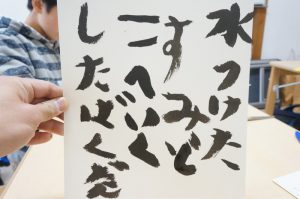 水つけた
すみど
こへいく
したばくだ